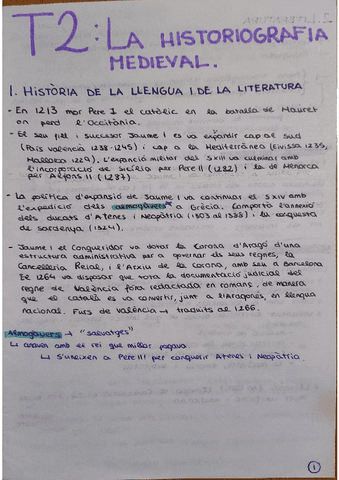 T2: LA HISTORIOGRAFIA
MEDIEVAL.
1. HISTÒRIA DE LA LLENGUA I DE LA LITERATURA
- En 1213 mor Pere I el catòlic en la batalla de Mauret
on perd l'Occitània.
- El seu fill i successor Jaume I es va expandir cap al sud
(País Valencià 1238-1245) i cap a la Mediterrània (Eivissa 1235,
Mallorca 1229). L'expanció militar del S.XIII va culminar amb
l'incorporació de Sicília per Pere II (1282) i la de Menorca
per Alfons II. (1287)
- La política d'expansió de Jaume I va continuar el S.XIV amb
l'expedició dels almogàvers* a Grècia. Comportà l'annexió
dels ducats d'Atenes i Neopàtria (1303 al 1388) i la conquesta
de Sardenya (1324).
- Jaume I el Conqueridor va dotar la Corona d'Aragó d'una
estructura administrativa per a governar els seus regnes, la
Cancelleria Reial, i l'Arxiu de la Corona, amb seu a Barcelona
En 1264 va disposar que tota la documentació judicial del
regne de València fóra redactada en romanç, de manera
que el català es va convertir, junt a l'aragonés, en llengua
nacional. Furs de València → traduïts al 1266.
Almogàvers → "salvatges"
↳ anaven amb el rei que millor pagava
↳ S'uneixen a Pere III per conquerir Atenes i Neopàtria
1